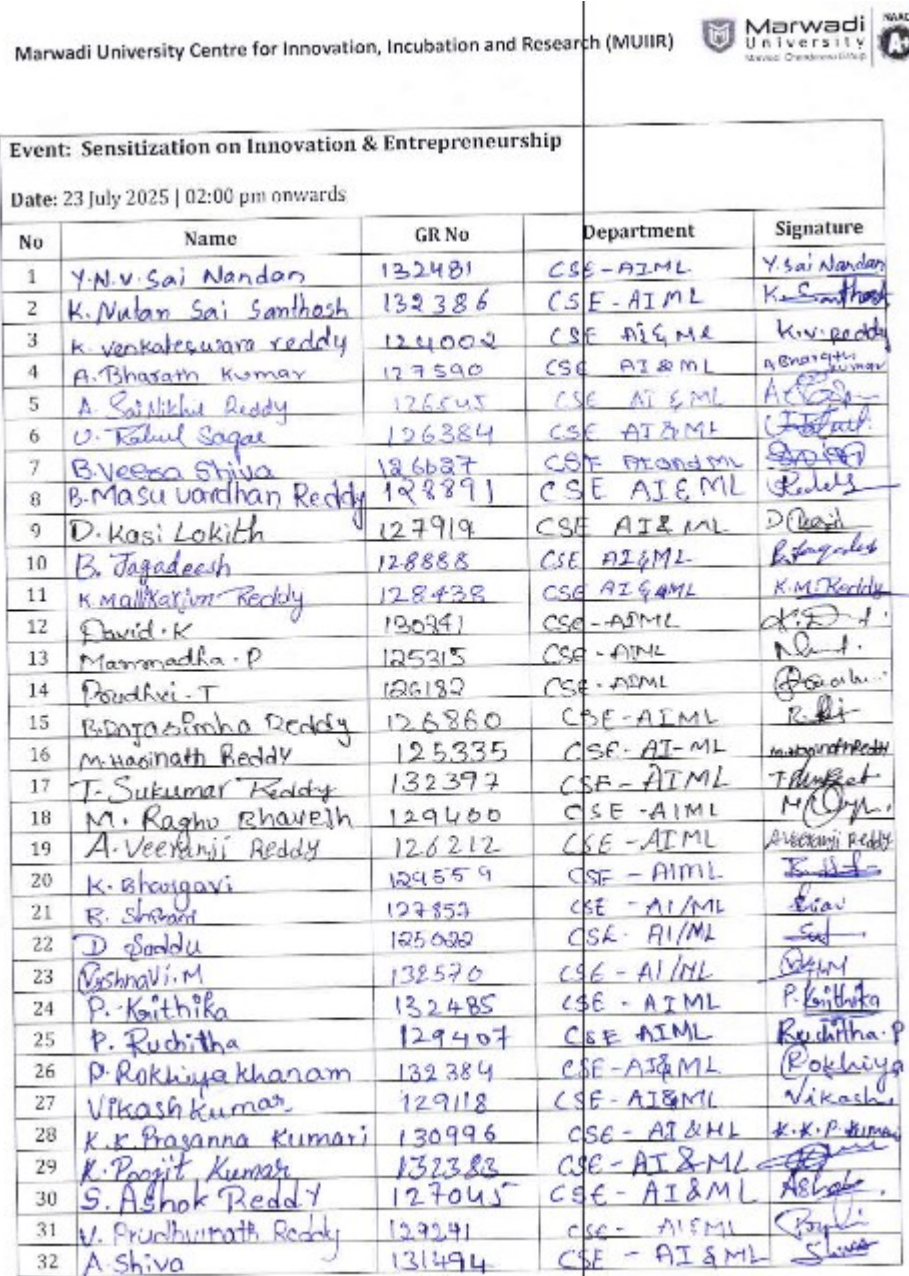 Marwadi University Centre for Innovation, Incubation and Research (MUIIR)
Marwadi
University
Marwadi Chandarana Group
NAAC
A+
Event: Sensitization on Innovation & Entrepreneurship
Date: 23 July 2025 | 02:00 pm onwards
No Name GR No Department Signature
1 Y.N.V. Sai Nandan 132481 CSE-AIML Y. Sai Nandan
2 K. Nutan Sai Santhosh 132386 CSE-AIML K. Santhosh
3 K. venkateswara reddy 124002 CSE AI&ML K.V. reddy
4 A. Bharath Kumar 127590 CSE AI&ML A Bharath kumar
5 A. Sai Nikhil Reddy 126545 CSE AI &ML
6 Rahul Sagar 126384 CSE AI&ML
7 B. Veera Shiva 126627 CSE AI and ML
8 B. Masu vardhan Reddy 128891 CSE AI&ML Reddy
9 D. Kasi Lokith 127919 CSE AI& ML
10 B. Jagadeesh 128888 CSE AI&ML B. Jagadesh
11 K. Mallikarjun Reddy 128438 CSE AI&ML K.M. Reddy
12 David.K CSE-AIML
13 Manmadha.P 125315 CSE-AIML
14 Poudhvi-T 126182 CSE-AIML
15 Reddy 126860 CSE-AIML
16 M. Harinath Reddy 125335 CSE-AI-ML M. Harinath Reddy
17 T. Sukumar Reddy 132397 CSE-AIML
18 M. Raghu Bhavesh 129400 CSE-AIML
19 A. Veeranji Reddy 126212 CSE-AIML A Veeranji Reddy
20 K. Bhargavi 129559 CSE-AIML
21 B. 127852 CSE-AI/ML
22 D 125022 CSE-AI/ML
23 Vyshnavi.M 138570 CSE-AI/ML
24 P. Krithika 132485 CSE-AIML P. Krithika
25 P. Ruchitha 129407 CSE AIML Ruchitha.P
26 P. Rokhiya khanam 132384 CSE-AI&ML Rokhiya
27 Vikash Kumar 129118 CSE-AI&ML Vikash
28 K.K Prasanna Kumari 130996 CSE-AI &ML K.K.P. Kumari
29 K. Poojit Kumar 132383 CSE-AI &ML
30 S. Ashok Reddy 127045 CSE-AI&ML Ashok
31 V. Reddy 129291 CSE- AI&ML
32 A. Shiva 131494 CSE - AI &ML Shiva